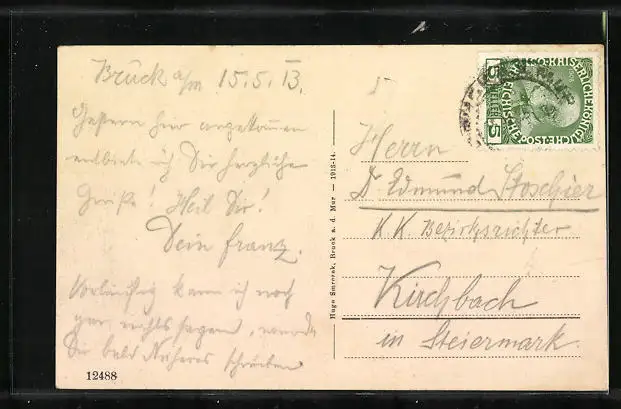 Bruck a/m 15.5.13.
Gestern hier angekommen
entbiete ich Dir herzliche
Grüße! Heil Dir!
Dein Franz.
Vorläufig kann ich noch
gar nichts sagen, werde
Dir bald Näheres schreiben
12488
Hugo Smreerak, Bruck a. d. Mur — 1913-14.
5
5
Herrn
Dr. Edmund Stoschier
K. K. Bezirksrichter
Kirchbach
in Steiermark.